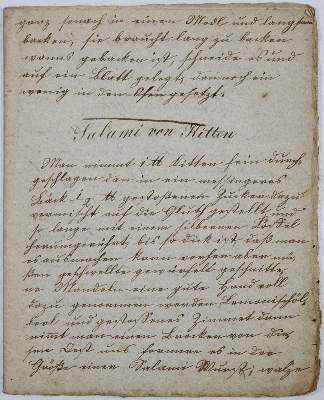 ganz heraus in einen Model und lang
backen, sie braucht lang zu backen
wanns gebacken ist, schneide es und
auf ein Blatt gelegt, dan noch ein
wenig in den Ofen gesetzt.
Salami von Kitten
Man nimmt 1 ℔ Kitten fein durch
geschlagen dan in ein messingenes
Beck 1/2 ℔ gestoßenen Zucker dazu
vermischt auf die Glut gestellt und
so lange mit einem silbernen Löffel
herumgerührt, bis so dick ist, daß man
es ausmachen kann vorher aber müs
ßen geschwellte gewürfelt geschnitte
ne Mandeln eine gute Hand voll
dazu genommen werden Lemonischäl
und gestossenes Zimmet dann
nimmt man einen Brocken von die
sem und formiere es in der
Größe einer Salami Wurst, walze